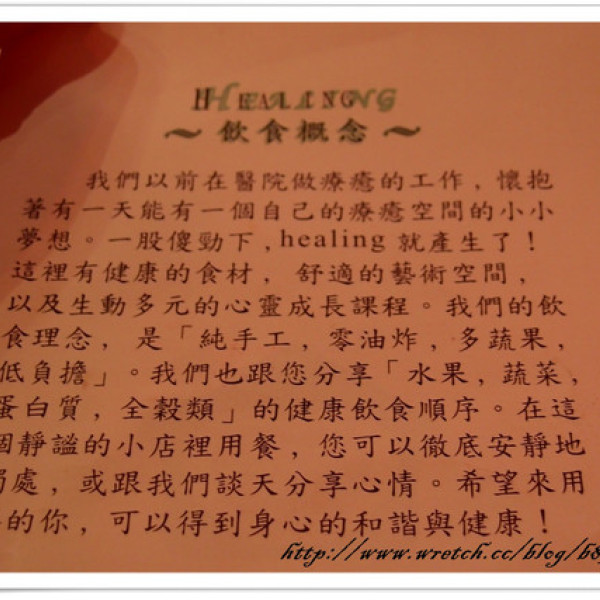 HEALING
～飲食概念～
我們以前在醫院做療癒的工作，懷抱
著有一天能有一個自己的療癒空間的小小
夢想。一股傻勁下，healing 就產生了！
這裡有健康的食材，舒適的藝術空間，
以及生動多元的心靈成長課程。我們的飲
食理念，是「純手工，零油炸，多蔬果，
低負擔」。我們也跟您分享「水果，蔬菜，
蛋白質，全穀類」的健康飲食順序。在這
個靜謐的小店裡用餐，您可以徹底安靜地
獨處，或跟我們談天分享心情。希望來用
的你，可以得到身心的和諧與健康！
http://www.wretch.cc/blog/b8